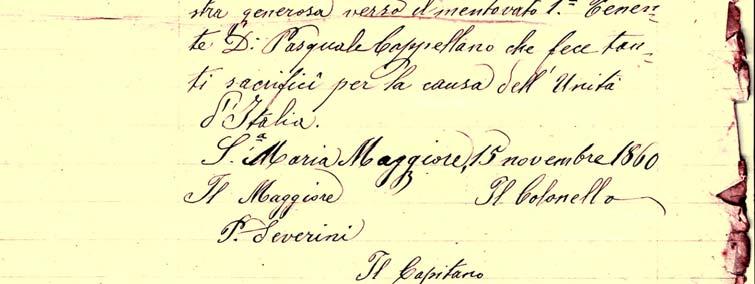 stra generosa verso il mentovato 1.º Tenen-
te D. Pasquale Cappellano che fece tan-
ti sacrifici per la causa dell'Unità
d'Italia.
S.a Maria Maggiore, 15 novembre 1860
Il Maggiore Il Colonello
P. Severini
Il Capitano